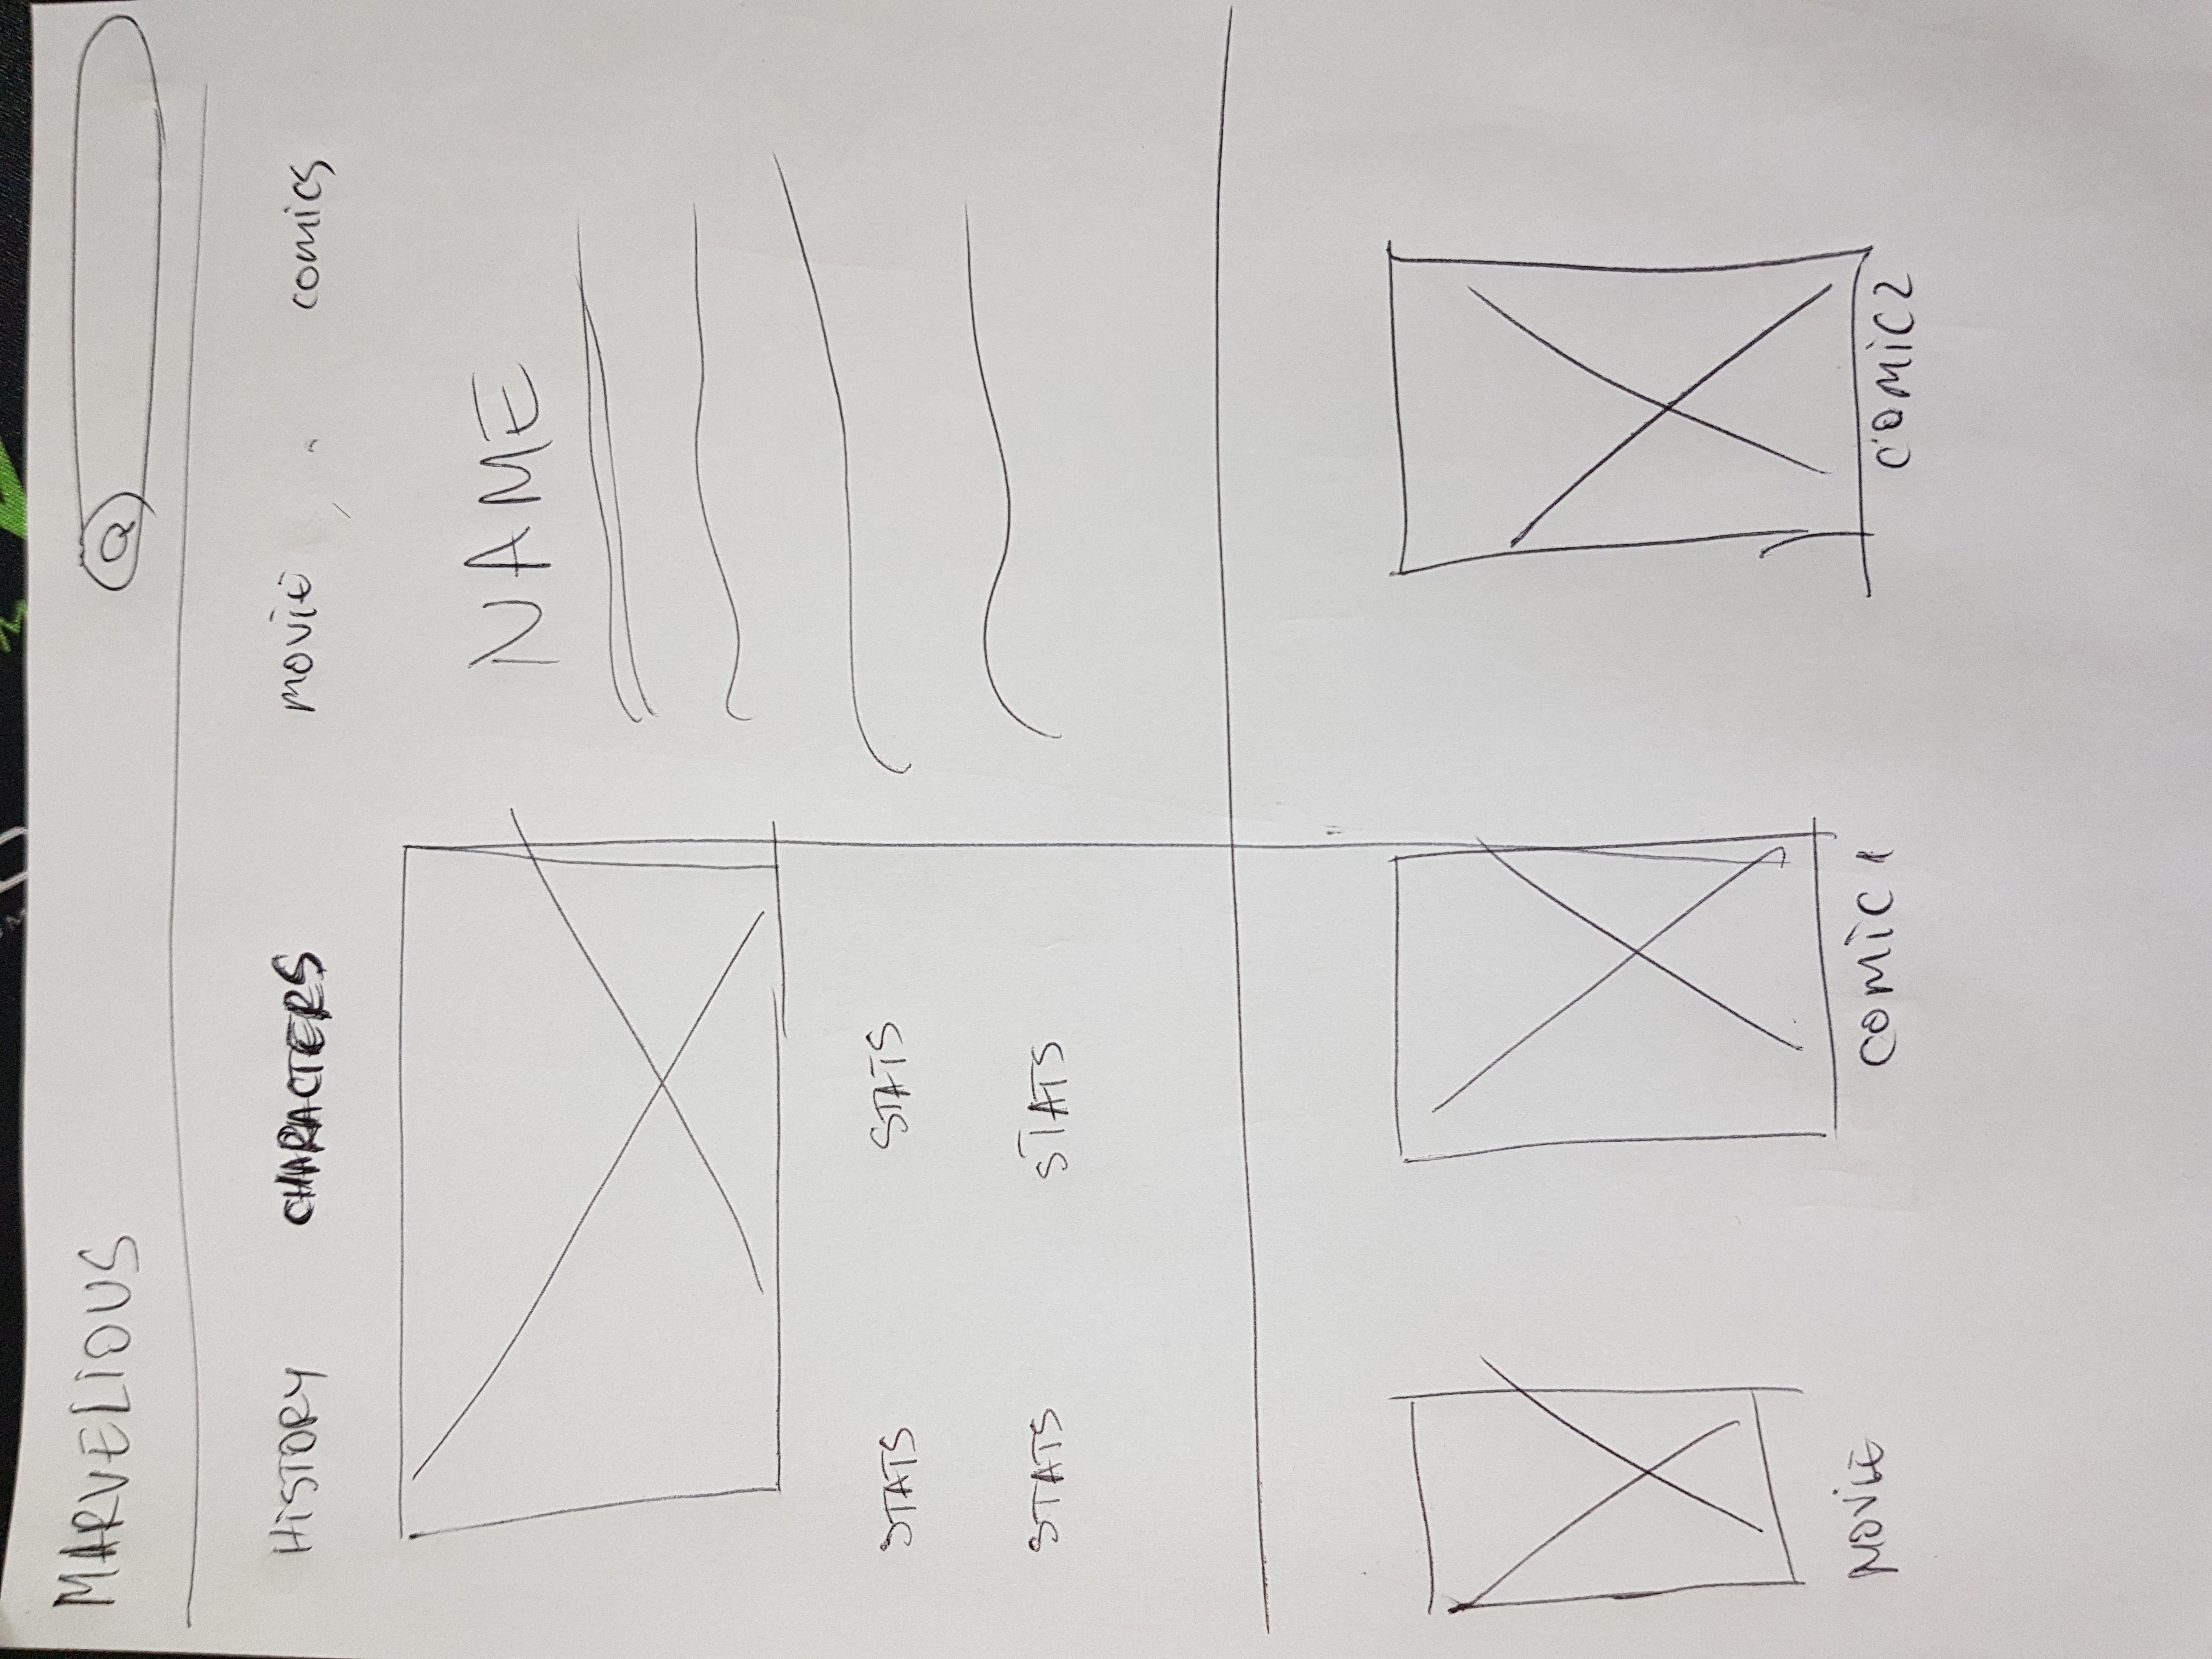 MARVELIOUS
HISTORY CHARACTERS movie comics
NAME
STATS STATS
STATS STATS
MOVIE COMIC 1 COMIC 2